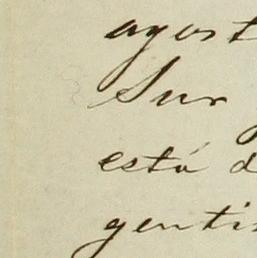 agost
Sur
está d
gentis